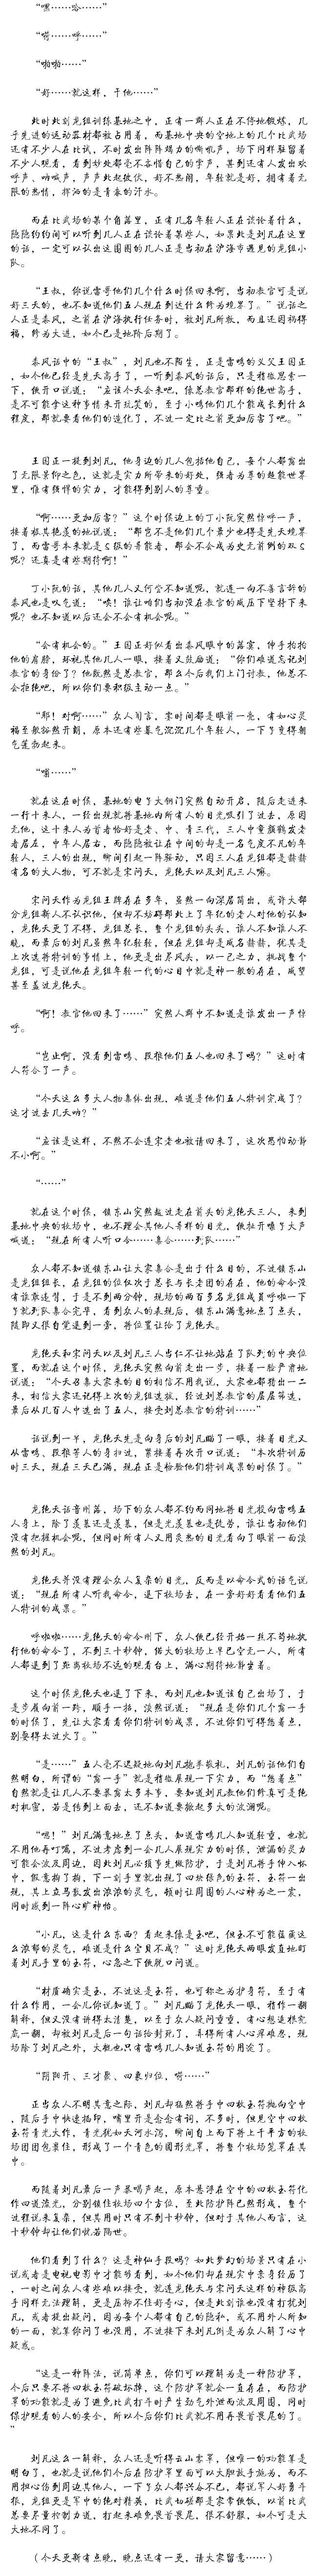 “嘿……哈……”
“嗬……呼……”
“啪啪……”
“好……就这样，干他……”
此时此刻龙组训练基地之中，正有一群人正在不停地锻炼，几
乎先进的运动器材都被占用着，而基地中央的空地上的几个比武场
还有不少人在比试，不时发出阵阵精力的嘶吼声，场下同样驻留着
不少人观看，看到妙处都毫不吝惜自己的掌声，甚到还有人发出欢
呼声、呐喊声，声声此起彼伏，好不热闹，年轻就是好，拥有着无
限的热情，挥洒的是青春的汗水。
而在比武场的某个角落里，正有几名年轻人正在谈论着什么，
隐隐约约间可以听到几人正在谈论着某些人，如果此是刘凡在这里
的话，一定可以认出这围圈的几人正是当初在沪海市遇见的龙组小
队。
“王叔，你说雷哥他们几个什么时候回来啊，当初教官可是说
好三天的，也不知道他们五人现在到达什么修为境界了。”说话之
人正是秦风，之前在沪海执行任务时，被刘凡所救，而且还因祸得
福，修为大进，如今已是地阶后期了。
秦风话中的“王叔”，刘凡也不陌生，正是雷鸣的义父王因正，
如今他已经是先天高手了，一听到秦风的话后，只是稍微思索一
下，便开口说道：“应该今天会来吧，像总教官那样的绝世高手，
是不可能拿这种事情来开玩笑的，至于小鸣他们几个能成长到什么
程度，那就要看他们的造化了，不过一定比之前更加厉害了吧。”
王因正一提到刘凡，他身边的几人包括他自己，每个人都露出
了无限景仰之色，这就是实力所带来的好处，强者为尊的超能世界
里，唯有强悍的实力，才能得到别人的尊重。
“啊……更加厉害？”这个时候边上的丁小阮突然惊呼一声，
接着极其艳羡的她说道：“那岂不是他们几个最少也得是先天境界
了，而雷哥本来就是S级的异能者，那会不会成为史无前例的双S
呢？还真是有些期待啊！”
丁小阮的话，其他几人又何尝不知道呢，就连一向不善言辞的
秦风也是叹气道：“唉！谁让咱们当初没在教官的威压下坚持下来
呢？也不知道以后还会不会有机会呢。”
“会有机会的。”王因正好似看出秦风眼中的落寞，伸手拍拍
他的肩膀，环视其他几人一眼，接着又鼓励道：“你们难道忘记刘
教官的身份了？他既然是总教官，那么今后我们上门讨教，他总不
会拒绝吧，所以你们要积极主动一点。”
“耶！对啊……”众人闻言，霎时间都是眼前一亮，有如心灵
福至般豁然开朗，原本还有些暮气沉沉几个年轻人，一下子变得朝
气蓬勃起来。
“嗡……”
就在这在时候，基地的电子大钢门突然自动开启，随后走进来
一行十来人，一经出现就将基地内所有人的目光吸引了过去，原因
无他，这十来人为首者恰好是老、中、青三代，三人中童颜鹤发老
者居左，中年人居右，而隐隐被让在中间的却是一名乞度不凡的年
轻人，三人的出现，瞬间引起一阵骚动，只因三人在龙组都是赫赫
有名的大人物，可不就是宋问天，龙绝天以及刘凡三人嘛。
宋问天作为龙组王牌存在多年，虽然一向深居简出，或许大部
分龙组新人不认识他，但却不妨碍那此上了年纪的老人对他的认知
，龙绝天更了不得，龙组总长，整个龙组的头头，谁人不知谁人不
晓，而最后的刘凡虽然年纪轻轻，但在龙组却是威名赫赫，犹其是
上次选择特训的事情上，他更是出尽风头，以一己之力，挑战整个
龙组，可是说他在龙组年轻一代的心目中就是神一般的存在，威望
甚至盖过龙绝天。
“啊！教官他回来了……”突然人群中不知道是谁发出一声惊
呼。
“岂止啊，没看到雷鸣、段狼他们五人也回来了吗？”这时有
人符合了一声。
“今天这么多大人物集体出现，难道是他们五人特训完成了？
这才过去几天呐？”
“应该是这样，不然不会连宋老也被请回来了，这次恐怕动静
不小啊。”
“……”
就在这个时候，镇东山突然越过走在首头的龙绝天三人，来到
基地中央的牧场中，也不理会其他人异样的目光，便扯开嗓子大声
喊道：“现在所有人听口令……集合……列队……”
众人都不知道镇东山让大家集合是出于什么目的，不过镇东山
是龙组组长，在龙组的位仅次于总长与长老团的存在，他的命令没
有谁敢违背，于是不到两分钟，现场的两百多名龙组成员呼啦一下
子就列队集合完毕，看到众人的表现后，镇东山满意地点了点头，
随即又很自觉退到一旁，将位置让给了龙绝天。
龙绝天和宋问天以及刘凡三人当仁不让地站在了队列的中央位
置，而就在这个时候，龙绝天突然向前走出一步，接着一脸严肃地
说道：“今天召集大家来的目的相信不用我说，大家也都猜出一二
来，相信大家还记得上次的龙组选拔，经过刘总教官的层层筛选，
最后从几百人中选出了五人，接受刘总教官的特训……”
话说到一半，龙绝天先是向身后的刘凡瞄了一眼，接着目光又
从雷鸣、段狼等人的身扫过，紧接着再次开口说道：“本次特训历
时三天，现在三天已满，现在正是检验他们特训成果的时候了。”
龙绝天话音刚落，场下的众人都不约而同地将目光投向雷鸣五
人身上，除了羡慕还是羡慕，但是光羡慕也是徒劳，谁让当初他们
没有把握机会呢，但同时所有人又用炙热的目光看向了眼前一面淡
然的刘凡。
龙绝天并没有理会众人复杂的目光，反而是以命令式的语气说
道：“现在所有人听我命令，退下牧场去，在一旁好好看看他们五
人特训的成果。”
呼啦啦……龙绝天的命令刚下，众人便已经开始一丝不苟地执
行他的命令了，不到三十秒钟，偌大的牧场上早已空无一人，所有
人都退到了距离牧场不远的观看台上，满心期待地静坐着。
这个时候龙绝天也退了下来，而刘凡也知道该自己出场了，于
是步履向前一跨，顺手一招，淡然说道：“现在是你们几个露一手
的时候了，先让大家看看你们特训的成果，不过你们可得悠着点，
别耍得太过火了。”
“是……”五人毫不迟疑地向刘凡抱拳敬礼，刘凡的话他们自
然明白，所谓的“露一手”就是稍微展现一下实力，而“悠着点”
自然就是让几人不要暴露太多本事，要知道刘凡教他们修真可是绝
对机密，若是传到上面去，还不知道要掀起多大的波澜呢。
“嗯！”刘凡满意地点了点头，知道雷鸣几人知道轻重，也就
不用他再叮嘱，不过考虑到一会几人展现实力的时候，泄漏的灵力
可能会波及周边，因此刘凡必须事先做防护，于是刘凡将手伸入怀
中，假意掏了掏，下一刻手里就出现了四块绿色的玉符，玉符一出
现，其上立马散发出浓浓的灵气，顿时让周围的人心神为之一震，
同时感到一阵心旷神怡。
“小凡，这是什么东西？看起来像是玉吧，但玉不可能蕴藏这
么浓郁的灵气，难道是什么宝贝不成？”这时龙绝天两眼发直地盯
着刘凡手里的玉符，心急之下便脱口问道。
“材质确实是玉，不过这是玉符，也可称之为护身符，至于有
什么作用，一会儿你说知道了。”刘凡瞄了龙绝天一眼，稍作一翻
解释，但又没有讲得太清楚，以至于众人疑问重重，有心想追根究
底一翻，却被刘凡是后一句话给封死了，弄得所有人心痒难忍，现
场除了刘凡之外，大概也只有雷鸣几人知道玉符的用途了。
“阴阳开、三才聚、四象归位，嗬……”
正当众人不明其意之际，刘凡却猛然将手中四枚玉符抛向空中
，随后手中快速掐印，嘴里开是念念有词，不多时，但见空中四枚
玉符青光大作，青光犹如天河水泻，瞬间自上而下将上千平方的牧
场团团包裹住，形成了一个青色的圆形光罩，将整个牧场笼罩在其
中。
而随着刘凡最后一声暴喝声起，原本悬浮在空中的四枚玉符化
作四道流光，分别镇住牧场四个方位，至此防护阵已然形成，整个
过程说来复杂，但其用时只有不到十秒钟，但对于其他人而言，这
十秒钟却让他们恍若隔世。
他们看到了什么？这是神仙手段吗？如此梦幻的场景只有在小
说或者是电视电影中才能够看到，如今他们却在现实中亲身经历了
，一时之间众人有些难以接受，就连龙绝天与宋问天这样的神级高
手同样无法理解，更是压抑不住好奇心，但是此刻谁也没有打扰刘
凡，或者提出疑问，因为每个人都有自己的隐私，或不用外人所知
的一面，就算你问了也没用，不过接下来刘凡倒是为众人解了心中
疑惑。
“这是一种阵法，说简单点，你们可以理解为是一种防护罩，
今后只要不将四枚玉符破坏掉，这个防护罩就会一直存在，而防护
罩的功能就是为了避免比武打斗时产生劲气外泄而波及周围，同时
保护观看的人的安全，所以今后你们比武就不用再畏首畏尾的了。
”
刘凡这么一解释，众人还是听得云山雾罩，但唯一的功能算是
明白了，也就是说他们今后在防护罩里面可以大胆放手施为，而不
用担心伤到周边其他人，一下子众人都兴奋不已，都说军人好勇斗
狠，龙组更是军中的绝对精英，比武切磋那是家常便饭，以前比武
总要尽量控制力道，打起来难免畏首畏尾，很不舒服，如今可是大
大地不同了。
（今天更新有点晚，晚点还有一更，请大家留意……）